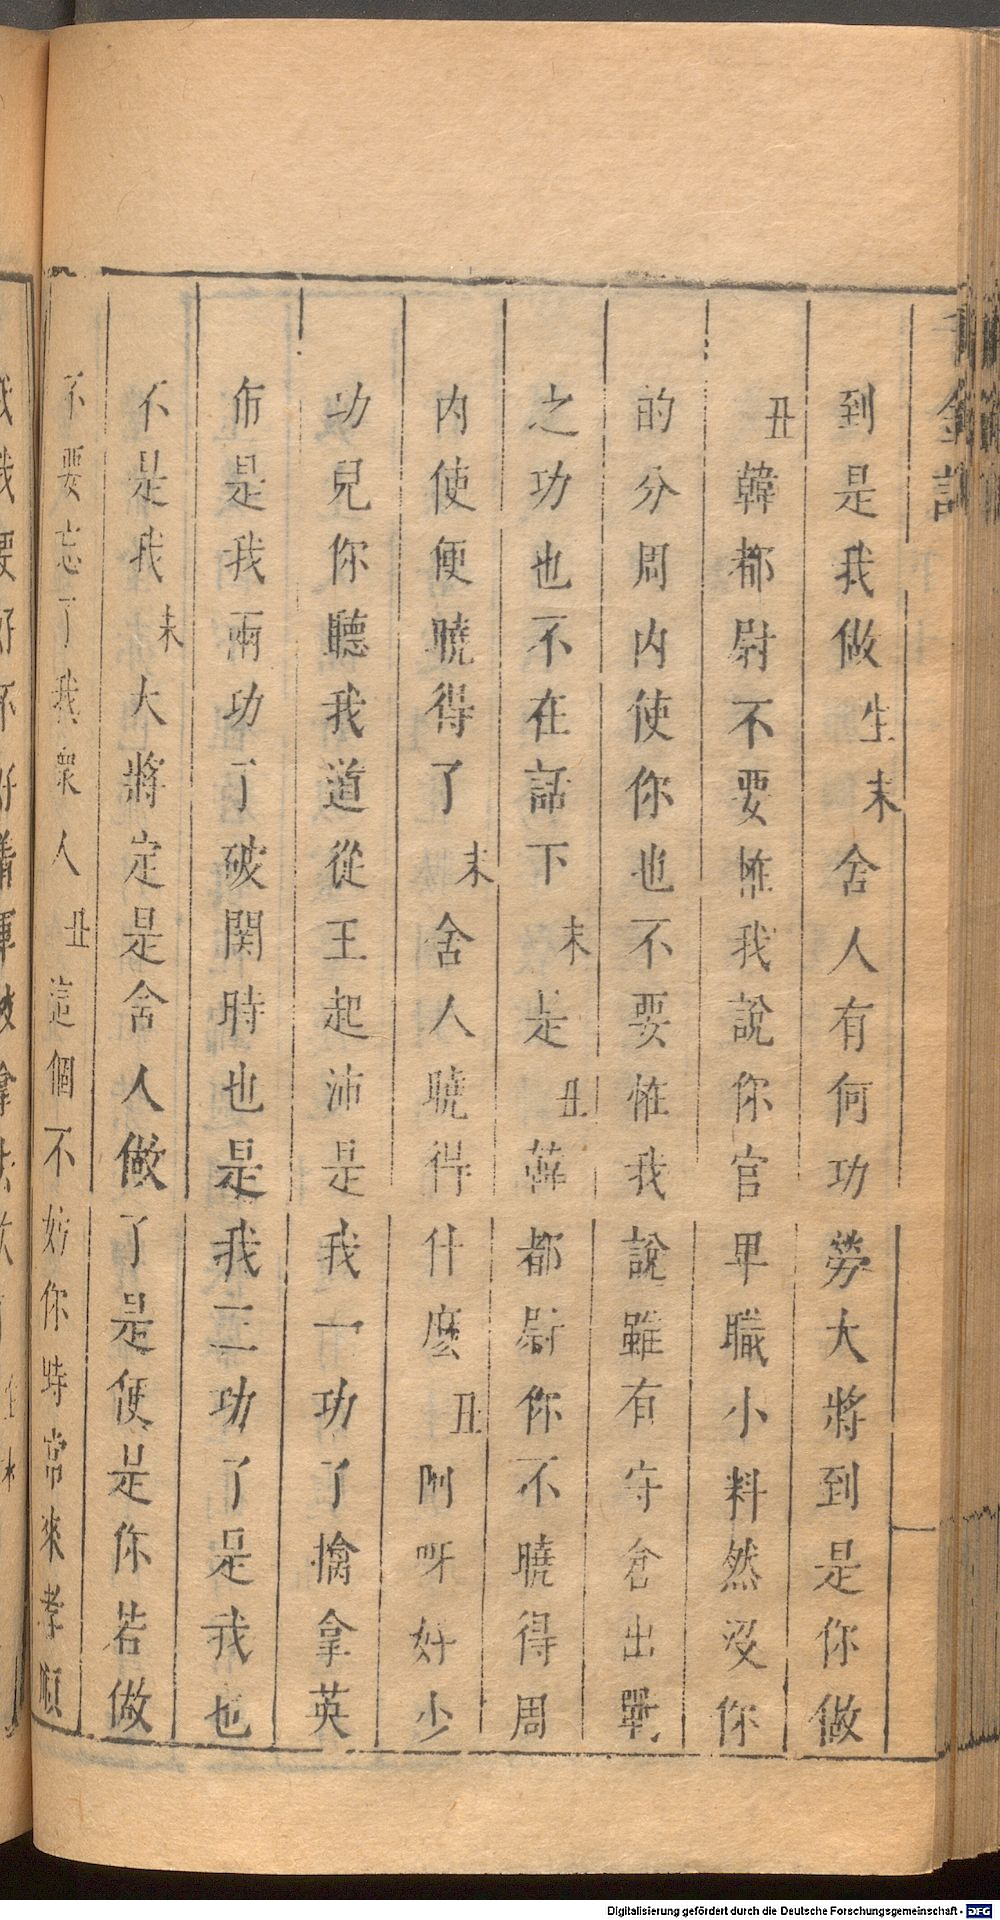 千金記
到是我做生末舍人有何功勞大將到是你做
丑韓都尉不要恠我說你官卑職小料然没你
的分周内使你也不要恠我說雖有守倉出戰
之功也不在話下末是丑韓都尉你不曉得周
内使便曉得了末舍人曉得什麽丑阿呀好少
功兒你聽我道從王起沛是我一功了擒拿英
布是我兩功了破関時也是我三功了是我也
不是我末大將定是舍人做了是便是你若做
不要忘了我衆人丑這個不妙你時常來孝順
Digitalisierung gefördert durch die Deutsche Forschungsgemeinschaft - DFG